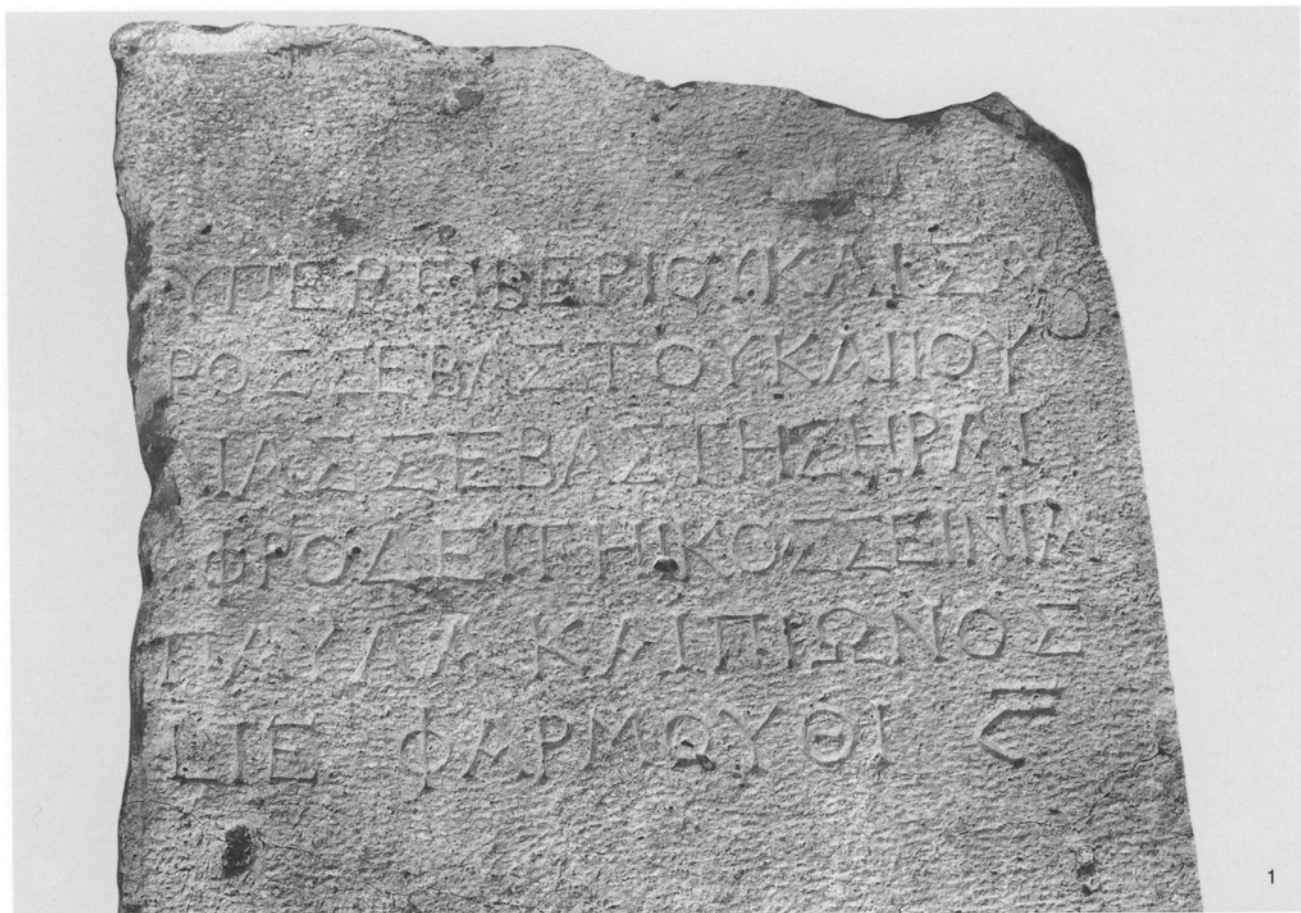 ΥΠΕΡΤΙΒΕΡΙΟΥΚΑΙΣΑ
ΡΟΣΣΕΒΑΣΤΟΥΚΑΙΙΟΥ
ΛΙΑΣΣΕΒΑΣΤΗΣΗΡΑΙ
ΑΦΡΟΔΕΙΤΗΙΚΟΣΣΕΙΝΙΑ
ΠΑΥΛΑ ΚΑΙΠΙΩΝΟΣ
LΙΕ ΦΑΡΜΩΥΘΙ Ϛ̅
1